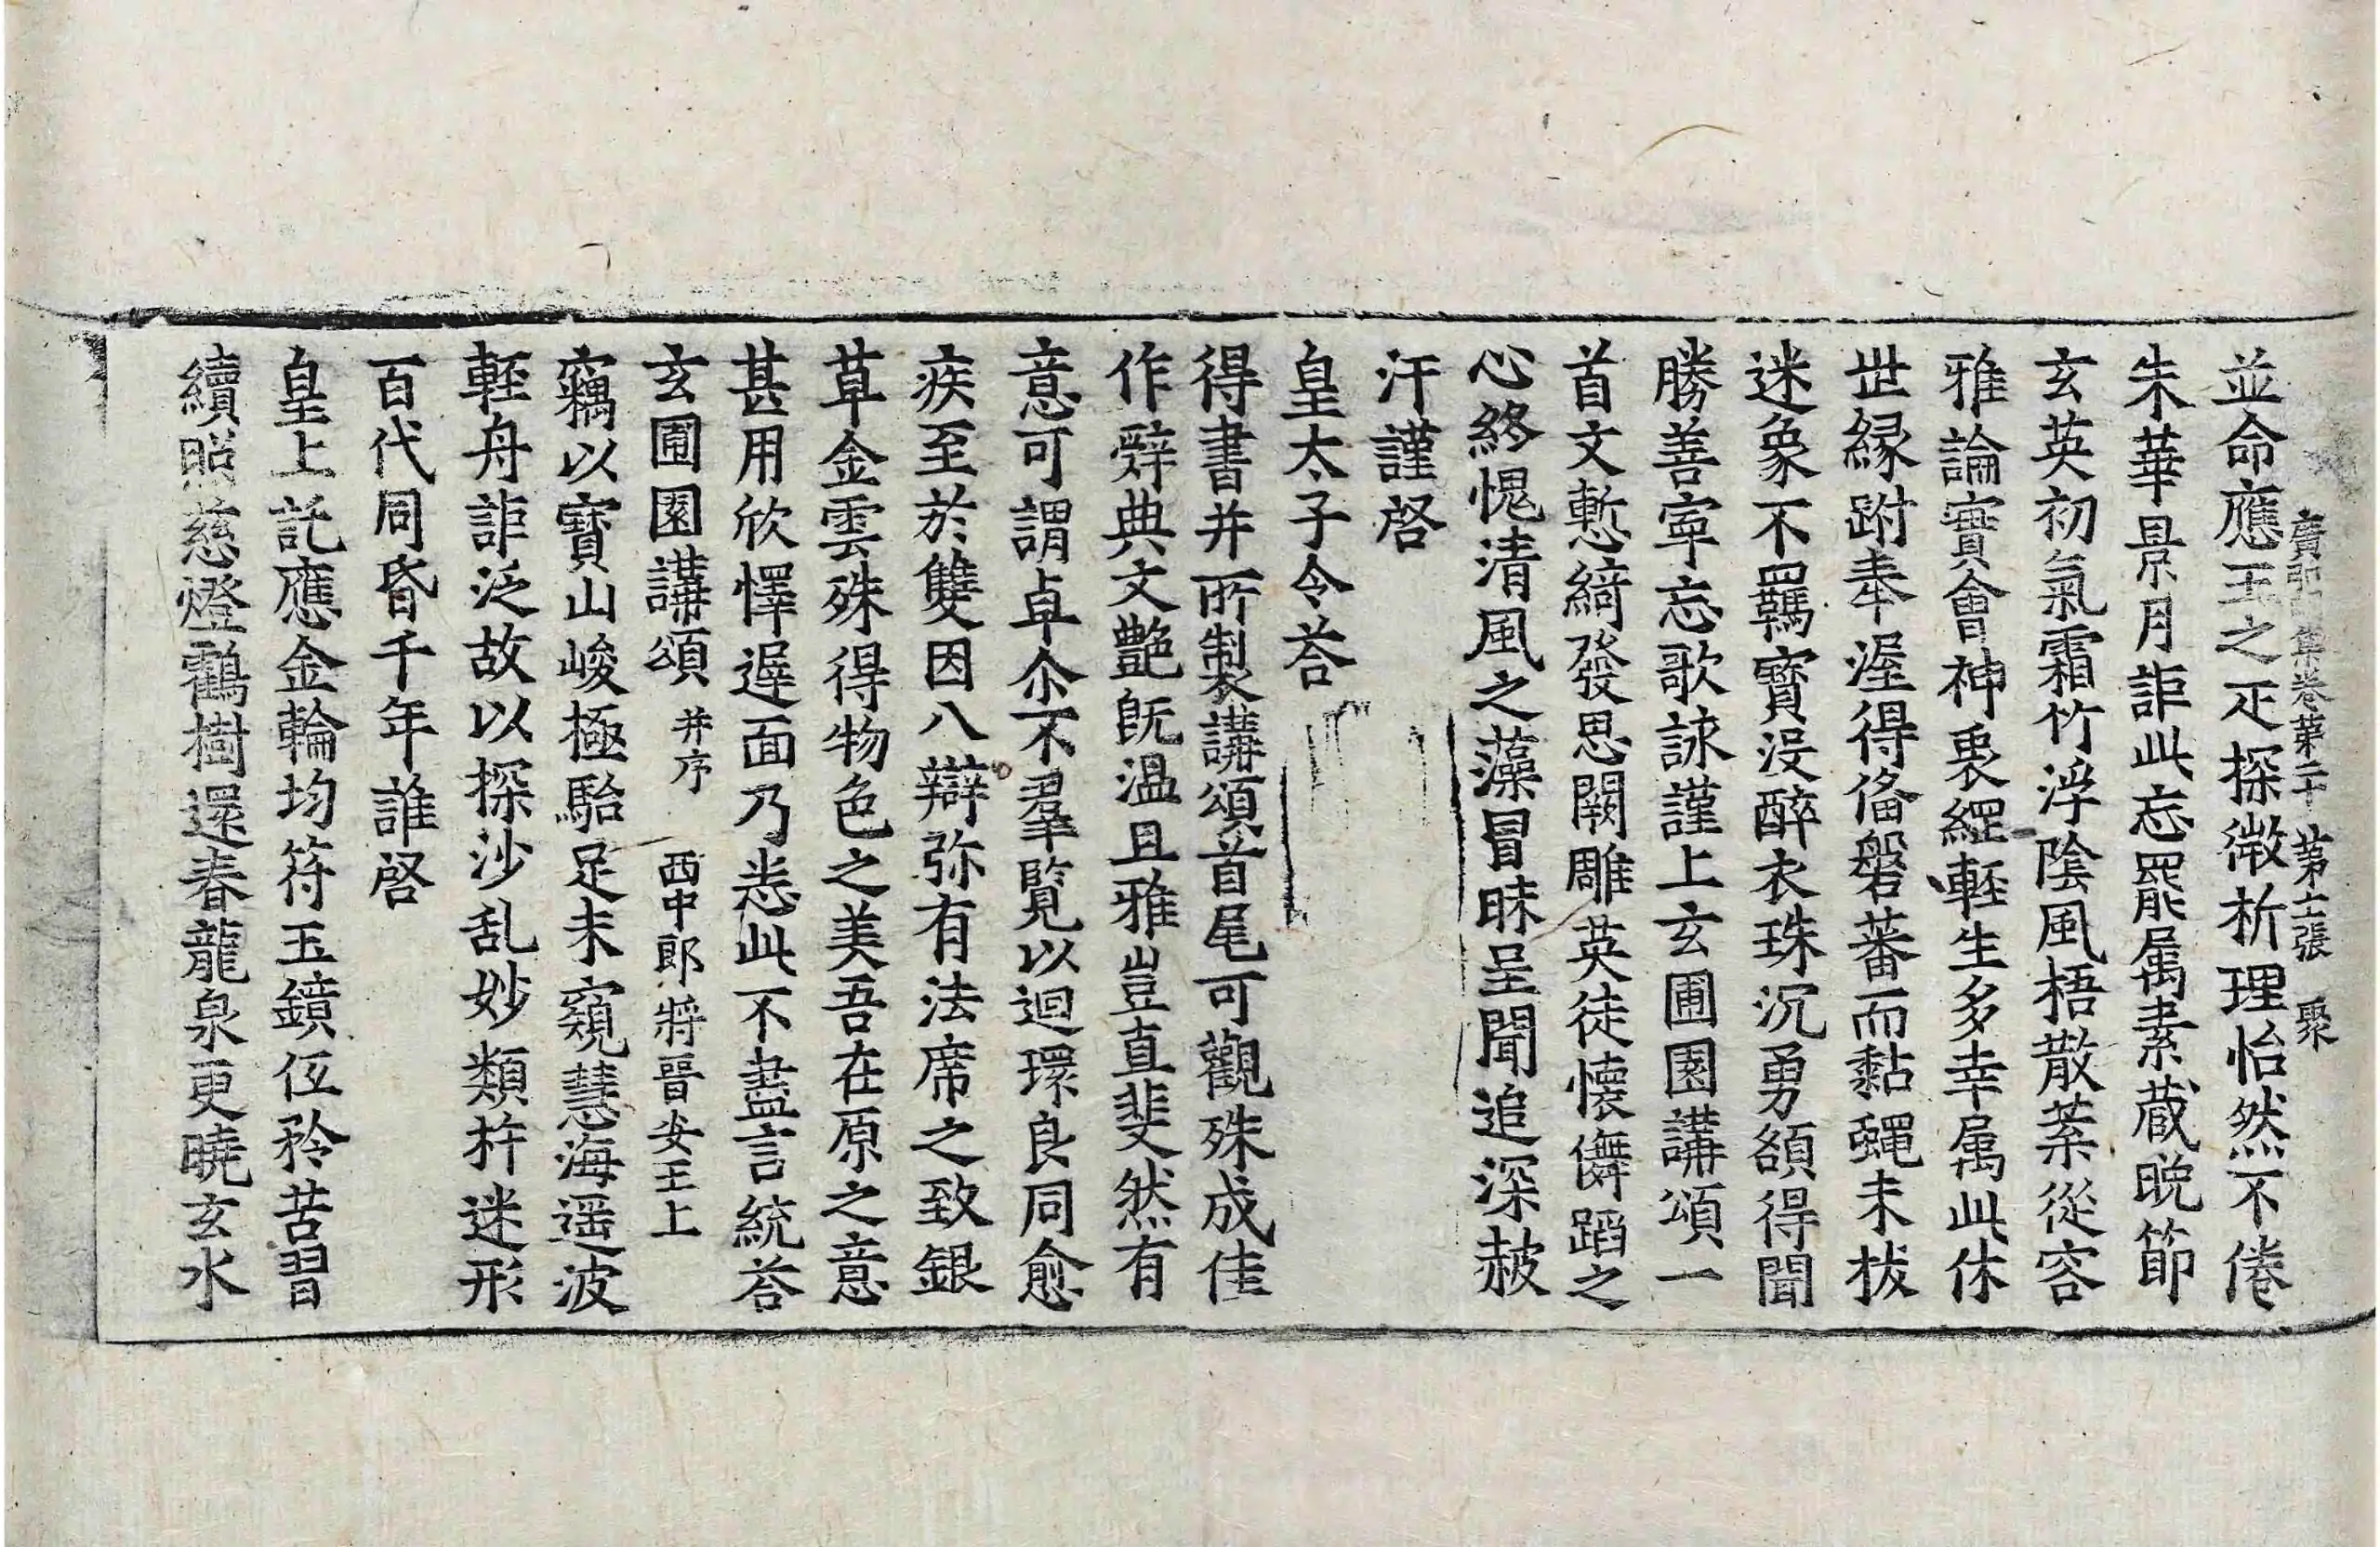 廣弘明集卷第二十 第十二張 聚
並命應王之疋探微析理怡然不倦
朱華景月詎此忘罷属素蔵晩節
玄英初氣霜竹浮陰風梧散蘂從容
雅論實會神衷繦軽生多幸属此休
世縁跗奉渥得俻磐蕃而黏蝿未拔
迷象不羈寳没醉衣珠沉勇頟得聞
勝善寧忘歌詠謹上玄圃園講頌一
首文慙綺發思闕雕英徒懐儛蹈之
心終愧清風之藻冒昧呈聞追深赧
汗謹啓
皇太子令荅
得書并所製講頌首尾可觀殊成佳
作辤典文艶旣温且雅豈直斐然有
意可謂卓尒不羣覧以迴環良同愈
疾至於雙因八辯弥有法席之致銀
草金雲殊得物色之美吾在原之意
甚用欣懌遲面乃悉此不盡言統荅
玄圃園講頌 并序 西中郎將晋安王上
竊以寳山峻極駘足未窺慧海遥波
軽舟詎泛故以探沙乱妙類杵迷形
百代同昏千年誰啓
皇上託應金輪均符玉鏡伍矜苦習
續照慈燈鸖樹還春龍泉更曉玄水